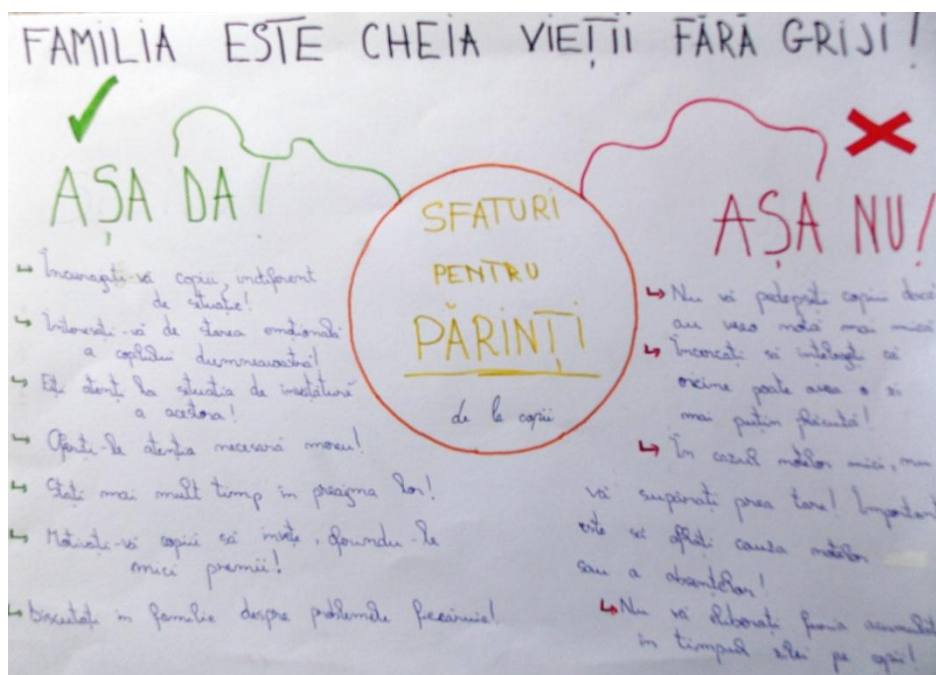 FAMILIA ESTE CHEIA VIEȚII FĂRĂ GRIJI!
AȘA DA!
Încurajați-vă copiii, indiferent
de situație!
Interesați-vă de starea emoțională
a copilului dumneavoastră!
Fiți atenți la situația de învățătură
a acestora!
Oferiți-le atenția necesară mereu!
Stați mai mult timp în preajma lor!
Motivați-vă copiii să învețe, oferindu-le
mici premii!
Discutați în familie despre problemele fiecăruia!
SFATURI
PENTRU
PĂRINȚI
de la copii
AȘA NU!
Nu vă pedepsiți copiii dacă
au vreo notă mai mică
Încercați să înțelegeți că
oricine poate avea o zi
mai puțin plăcută!
În cazul notelor mici, nu
vă supărați prea tare! Important
este să aflați cauza notelor
sau a absențelor!
Nu vă eliberați furia acumulată
în timpul zilei pe copii!